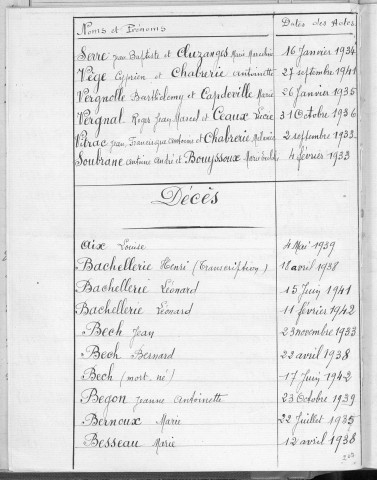 Noms et Prénoms Dates des Actes
Serre Jean Baptiste et Auzanges Marie Marceline 16 Janvier 1934
Vège Cyprien et Chabrerie Antoinette 27 septembre 1941
Vergnolle Barthélemy et Capdeville Marie 26 Janvier 1935
Vergnal Roger Jean Marcel et Ceaux Lucie 31 Octobre 1936
Vitrac Jean Françisque et Chabrerie 2 septembre 1933
Soubrane Antoine André et Bouyssoux 4 février 1933
Décès
Aix Louise 4 Mai 1939
Bachellerie Henri (Transcription) 18 avril 1938
Bachellerie Léonard 15 Juin 1941
Bachellerie Léonard 11 février 1942
Bech Jean 23 novembre 1933
Bech Bernard 22 avril 1938
Bech (mort-né) 17 Juin 1942
Begon Jeanne Antoinette 23 Octobre 1939
Bernoux Marie 22 Juillet 1935
Besseau Marie 12 avril 1938